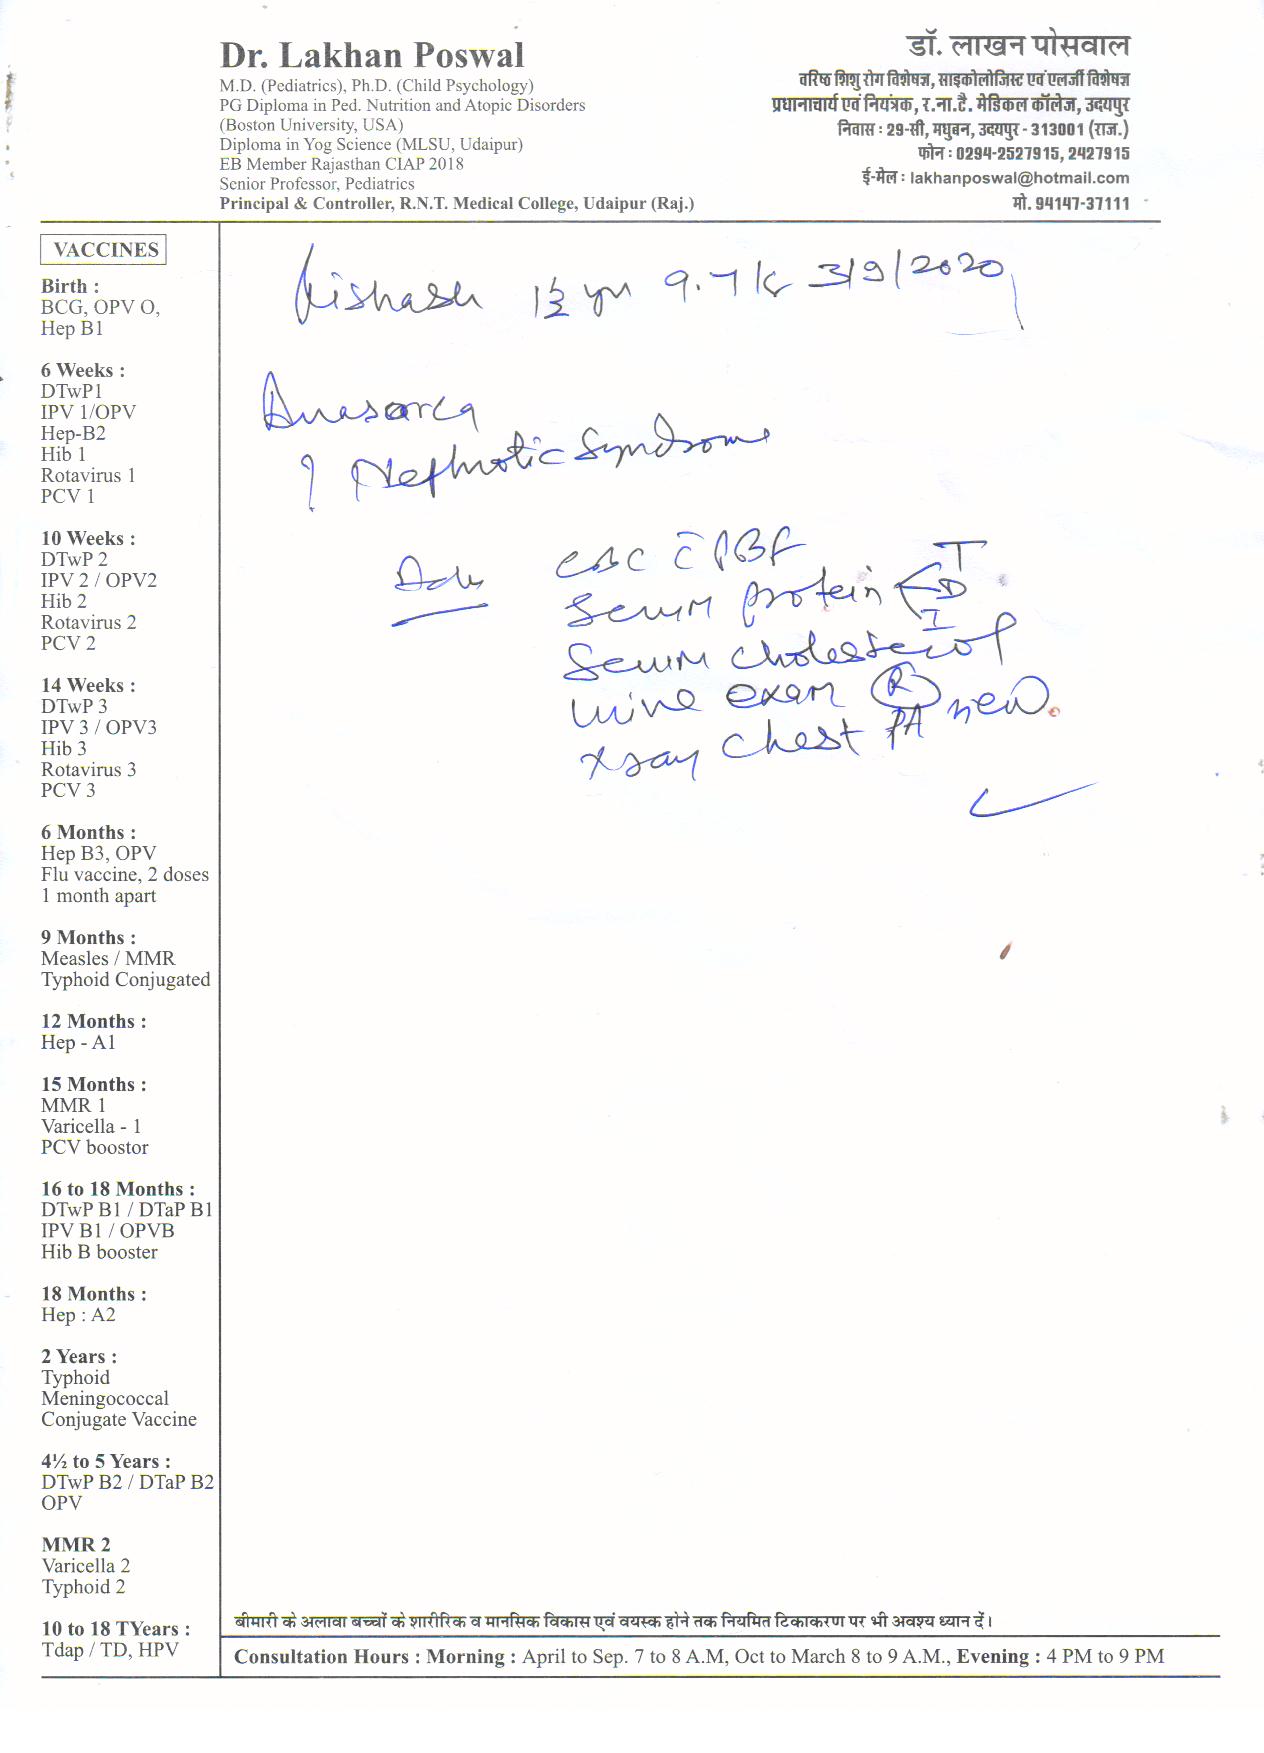 Dr. Lakhan Poswal
M.D. (Pediatrics), Ph.D. (Child Psychology)
PG Diploma in Ped. Nutrition and Atopic Disorders
(Boston University, USA)
Diploma in Yog Science (MLSU, Udaipur)
EB Member Rajasthan CIAP 2018
Senior Professor, Pediatrics
Principal & Controller, R.N.T. Medical College, Udaipur (Raj.)
डॉ. लाखन पोसवाल
वरिष्ठ शिशु रोग विशेषज्ञ, साइकोलोजिस्ट एवं एलर्जी विशेषज्ञ
प्रधानाचार्य एवं नियंत्रक, र.ना.टै. मेडिकल कॉलेज, उदयपुर
निवास : 29-सी, मधुबन, उदयपुर - 313001 (राज.)
फोन : 0294-2527915, 2427915
ई-मेल : lakhanposwal@hotmail.com
मो. 94147-37111
VACCINES
Birth :
BCG, OPV O,
Hep B1
6 Weeks :
DTwP1
IPV 1/OPV
Hep-B2
Hib 1
Rotavirus 1
PCV 1
10 Weeks :
DTwP 2
IPV 2 / OPV2
Hib 2
Rotavirus 2
PCV 2
14 Weeks :
DTwP 3
IPV 3 / OPV3
Hib 3
Rotavirus 3
PCV 3
6 Months :
Hep B3, OPV
Flu vaccine, 2 doses
1 month apart
9 Months :
Measles / MMR
Typhoid Conjugated
12 Months :
Hep - A1
15 Months :
MMR 1
Varicella - 1
PCV boostor
16 to 18 Months :
DTwP B1 / DTaP B1
IPV B1 / OPVB
Hib B booster
18 Months :
Hep : A2
2 Years :
Typhoid
Meningococcal
Conjugate Vaccine
4½ to 5 Years :
DTwP B2 / DTaP B2
OPV
MMR 2
Varicella 2
Typhoid 2
10 to 18 TYears :
Tdap / TD, HPV
1½ yr 9.7 kg 3/9/2020
Anasarca
? Nephrotic Syndrome
Adv CBC c̄ PBF
Serum protein T D I
Serum cholesterol
urine exam (R)
xray chest PA view.
बीमारी के अलावा बच्चों के शारीरिक व मानसिक विकास एवं वयस्क होने तक नियमित टिकाकरण पर भी अवश्य ध्यान दें।
Consultation Hours : Morning : April to Sep. 7 to 8 A.M, Oct to March 8 to 9 A.M., Evening : 4 PM to 9 PM